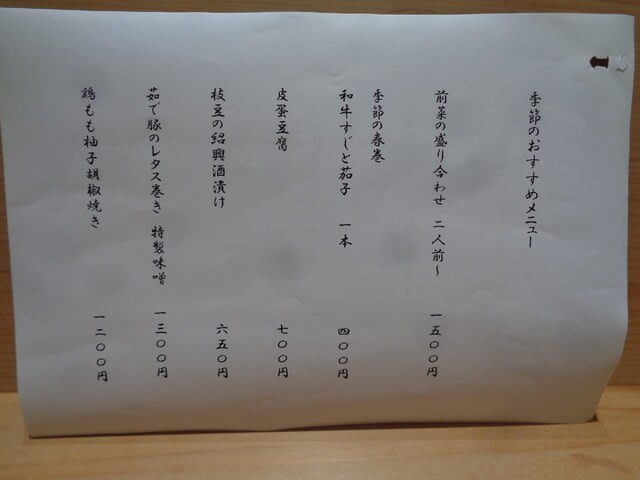 季節のおすすめメニュー
前菜の盛り合わせ 二人前～ 一五〇〇円
季節の春巻
和牛すじと茄子 一本 四〇〇円
皮蛋豆腐 七〇〇円
枝豆の紹興酒漬け 六五〇円
茹で豚のレタス巻き 特製味噌 一三〇〇円
鶏もも柚子胡椒焼き 一二〇〇円